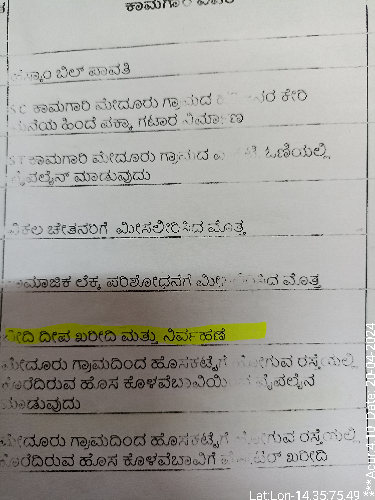 ಕಾಮಗಾರಿ
ಬಿಲ್ ಪಾವತಿ
SC ಕಾಮಗಾರಿ ಮೇದೂರು ಗ್ರಾಮದ ಕೇರಿ
ಹಿಂದೆ ಪಕ್ಕಾ ಗಟಾರ ನಿರ್ಮಾಣ
ST ಕಾಮಗಾರಿ ಮೇದೂರು ಗ್ರಾಮದ ಓಣಿಯಲ್ಲಿ
ಪೈಪಲೈನ್ ಮಾಡುವುದು
ವಿಕಲ ಚೇತನರಿಗೆ ಮೀಸಲಿರಿಸಿದ ಮೊತ್ತ
ಸಾಮಾಜಿಕ ಲೆಕ್ಕ ಪರಿಶೋಧನೆಗೆ ಮೊತ್ತ
ಬೀದಿ ದೀಪ ಖರೀದಿ ಮತ್ತು ನಿರ್ವಹಣೆ
ಮೇದೂರು ಗ್ರಾಮದಿಂದ ಹೊಸಕಟ್ಟೆಗೆ ಹೋಗುವ ರಸ್ತೆಯಲ್ಲಿ
ಕೊರೆದಿರುವ ಹೊಸ ಕೊಳವೆಬಾವಿಯಿಂದ ಪೈಪಲೈನ
ಮಾಡುವುದು
ಮೇದೂರು ಗ್ರಾಮದಿಂದ ಹೊಸಕಟ್ಟೆಗೆ ಹೋಗುವ ರಸ್ತೆಯಲ್ಲಿ
ಕೊರೆದಿರುವ ಹೊಸ ಕೊಳವೆಬಾವಿಗೆ ಖರೀದಿ
Lat:Lon-14.357549
20-04-2024